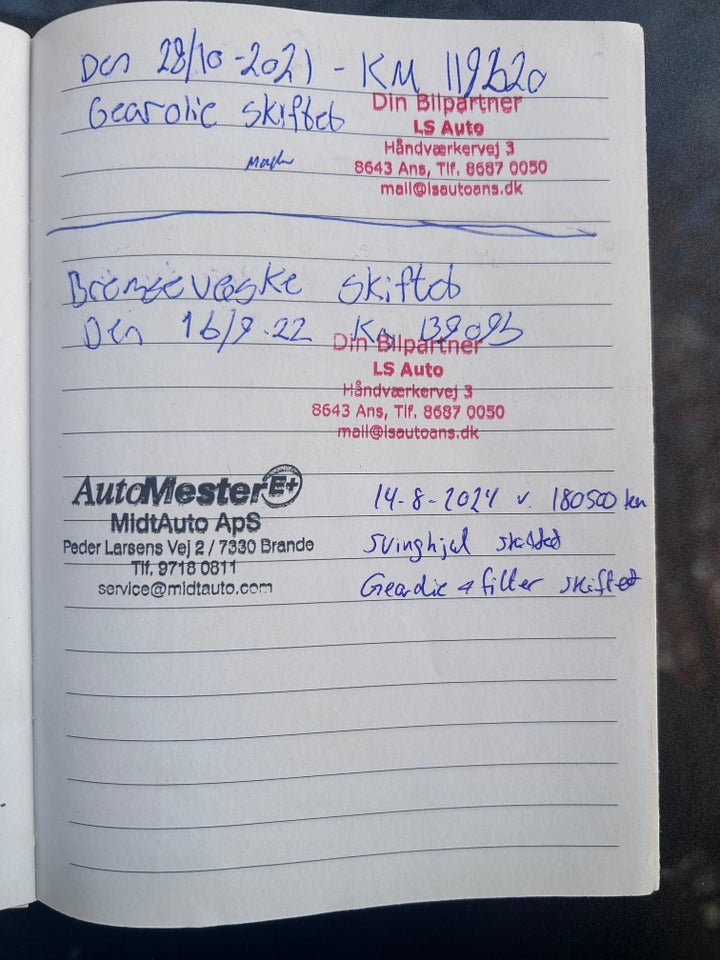 Den 28/10-2021 - KM 119320
Gearolie skiftet
Din Bilpartner
LS Auto
Håndværkervej 3
8643 Ans, Tlf. 8687 0050
mail@lsautoans.dk
Bremsevæske skiftet
Den 16/9.22 Km
Din Bilpartner
LS Auto
Håndværkervej 3
8643 Ans, Tlf. 8687 0050
mail@lsautoans.dk
AutoMester E+
MidtAuto ApS
Peder Larsens Vej 2 / 7330 Brande
Tlf. 9718 0811
service@midtauto.com
14-8-2024 v. 180500 km
Svinghjul skiftet
Gearolie + filter skiftet